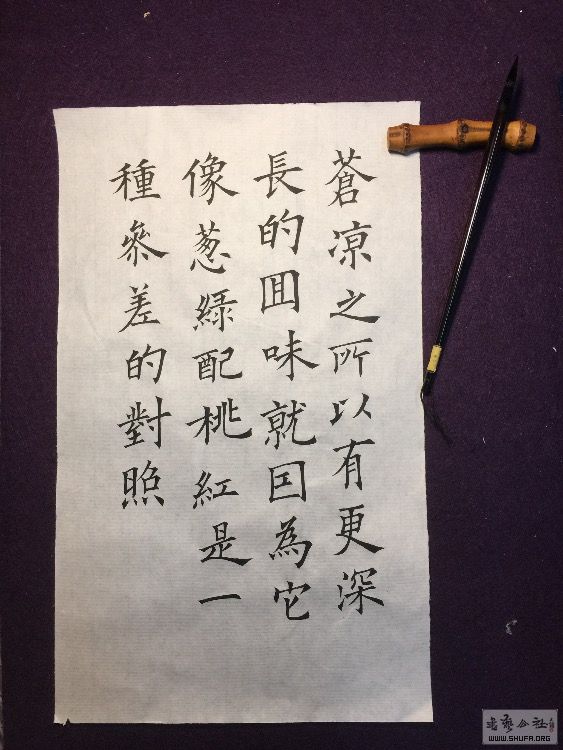 蒼凉之所以有更深
長的囬味就囙為它
像葱綠配桃紅是一
種叅差的對照
書藝公社
WWW.SHUFA.ORG